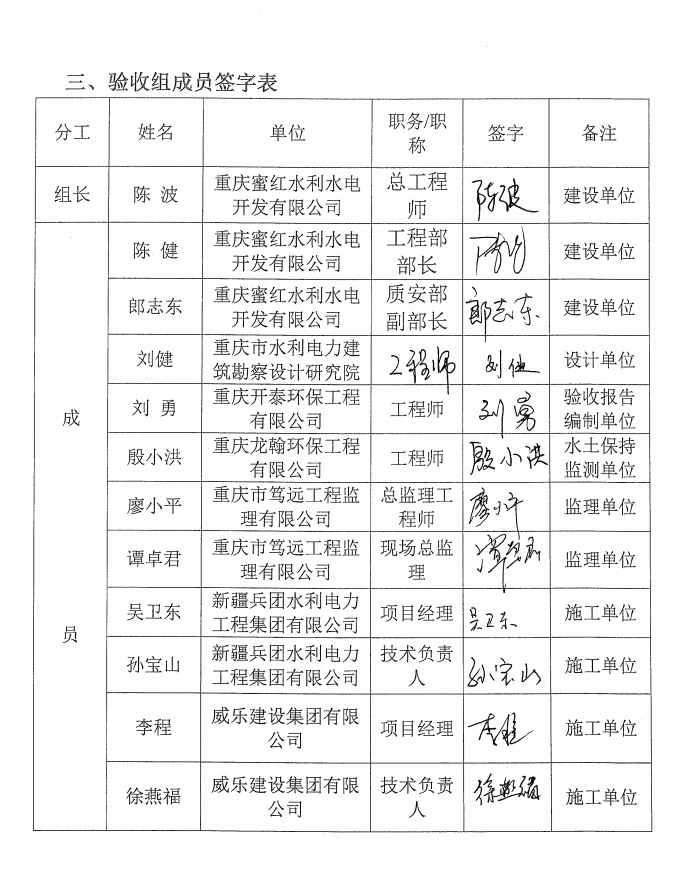 三、验收组成员签字表
分工 姓名 单位 职务/职称 签字 备注
组长 陈 波 重庆蜜红水利水电开发有限公司 总工程师 陈波 建设单位
成员
陈 健 重庆蜜红水利水电开发有限公司 工程部部长 陈健 建设单位
郎志东 重庆蜜红水利水电开发有限公司 质安部副部长 郎志东 建设单位
刘健 重庆市水利电力建筑勘察设计研究院 工程师 刘健 设计单位
刘 勇 重庆开泰环保工程有限公司 工程师 刘勇 验收报告编制单位
殷小洪 重庆龙翰环保工程有限公司 工程师 殷小洪 水土保持监测单位
廖小平 重庆市笃远工程监理有限公司 总监理工程师 廖小平 监理单位
谭卓君 重庆市笃远工程监理有限公司 现场总监理 谭卓君 监理单位
吴卫东 新疆兵团水利电力工程集团有限公司 项目经理 吴卫东 施工单位
孙宝山 新疆兵团水利电力工程集团有限公司 技术负责人 孙宝山 施工单位
李程 威乐建设集团有限公司 项目经理 李程 施工单位
徐燕福 威乐建设集团有限公司 技术负责人 徐燕福 施工单位